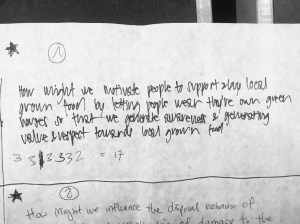 1
How might we motivate people to support & buy local
grown food by letting people wear they're own green
houses so that we generate awareness & generating
value & respect towards local grown food
3 3 3 3 3 2 = 17
2
How might we influence the disposal behavior of
of damage to the